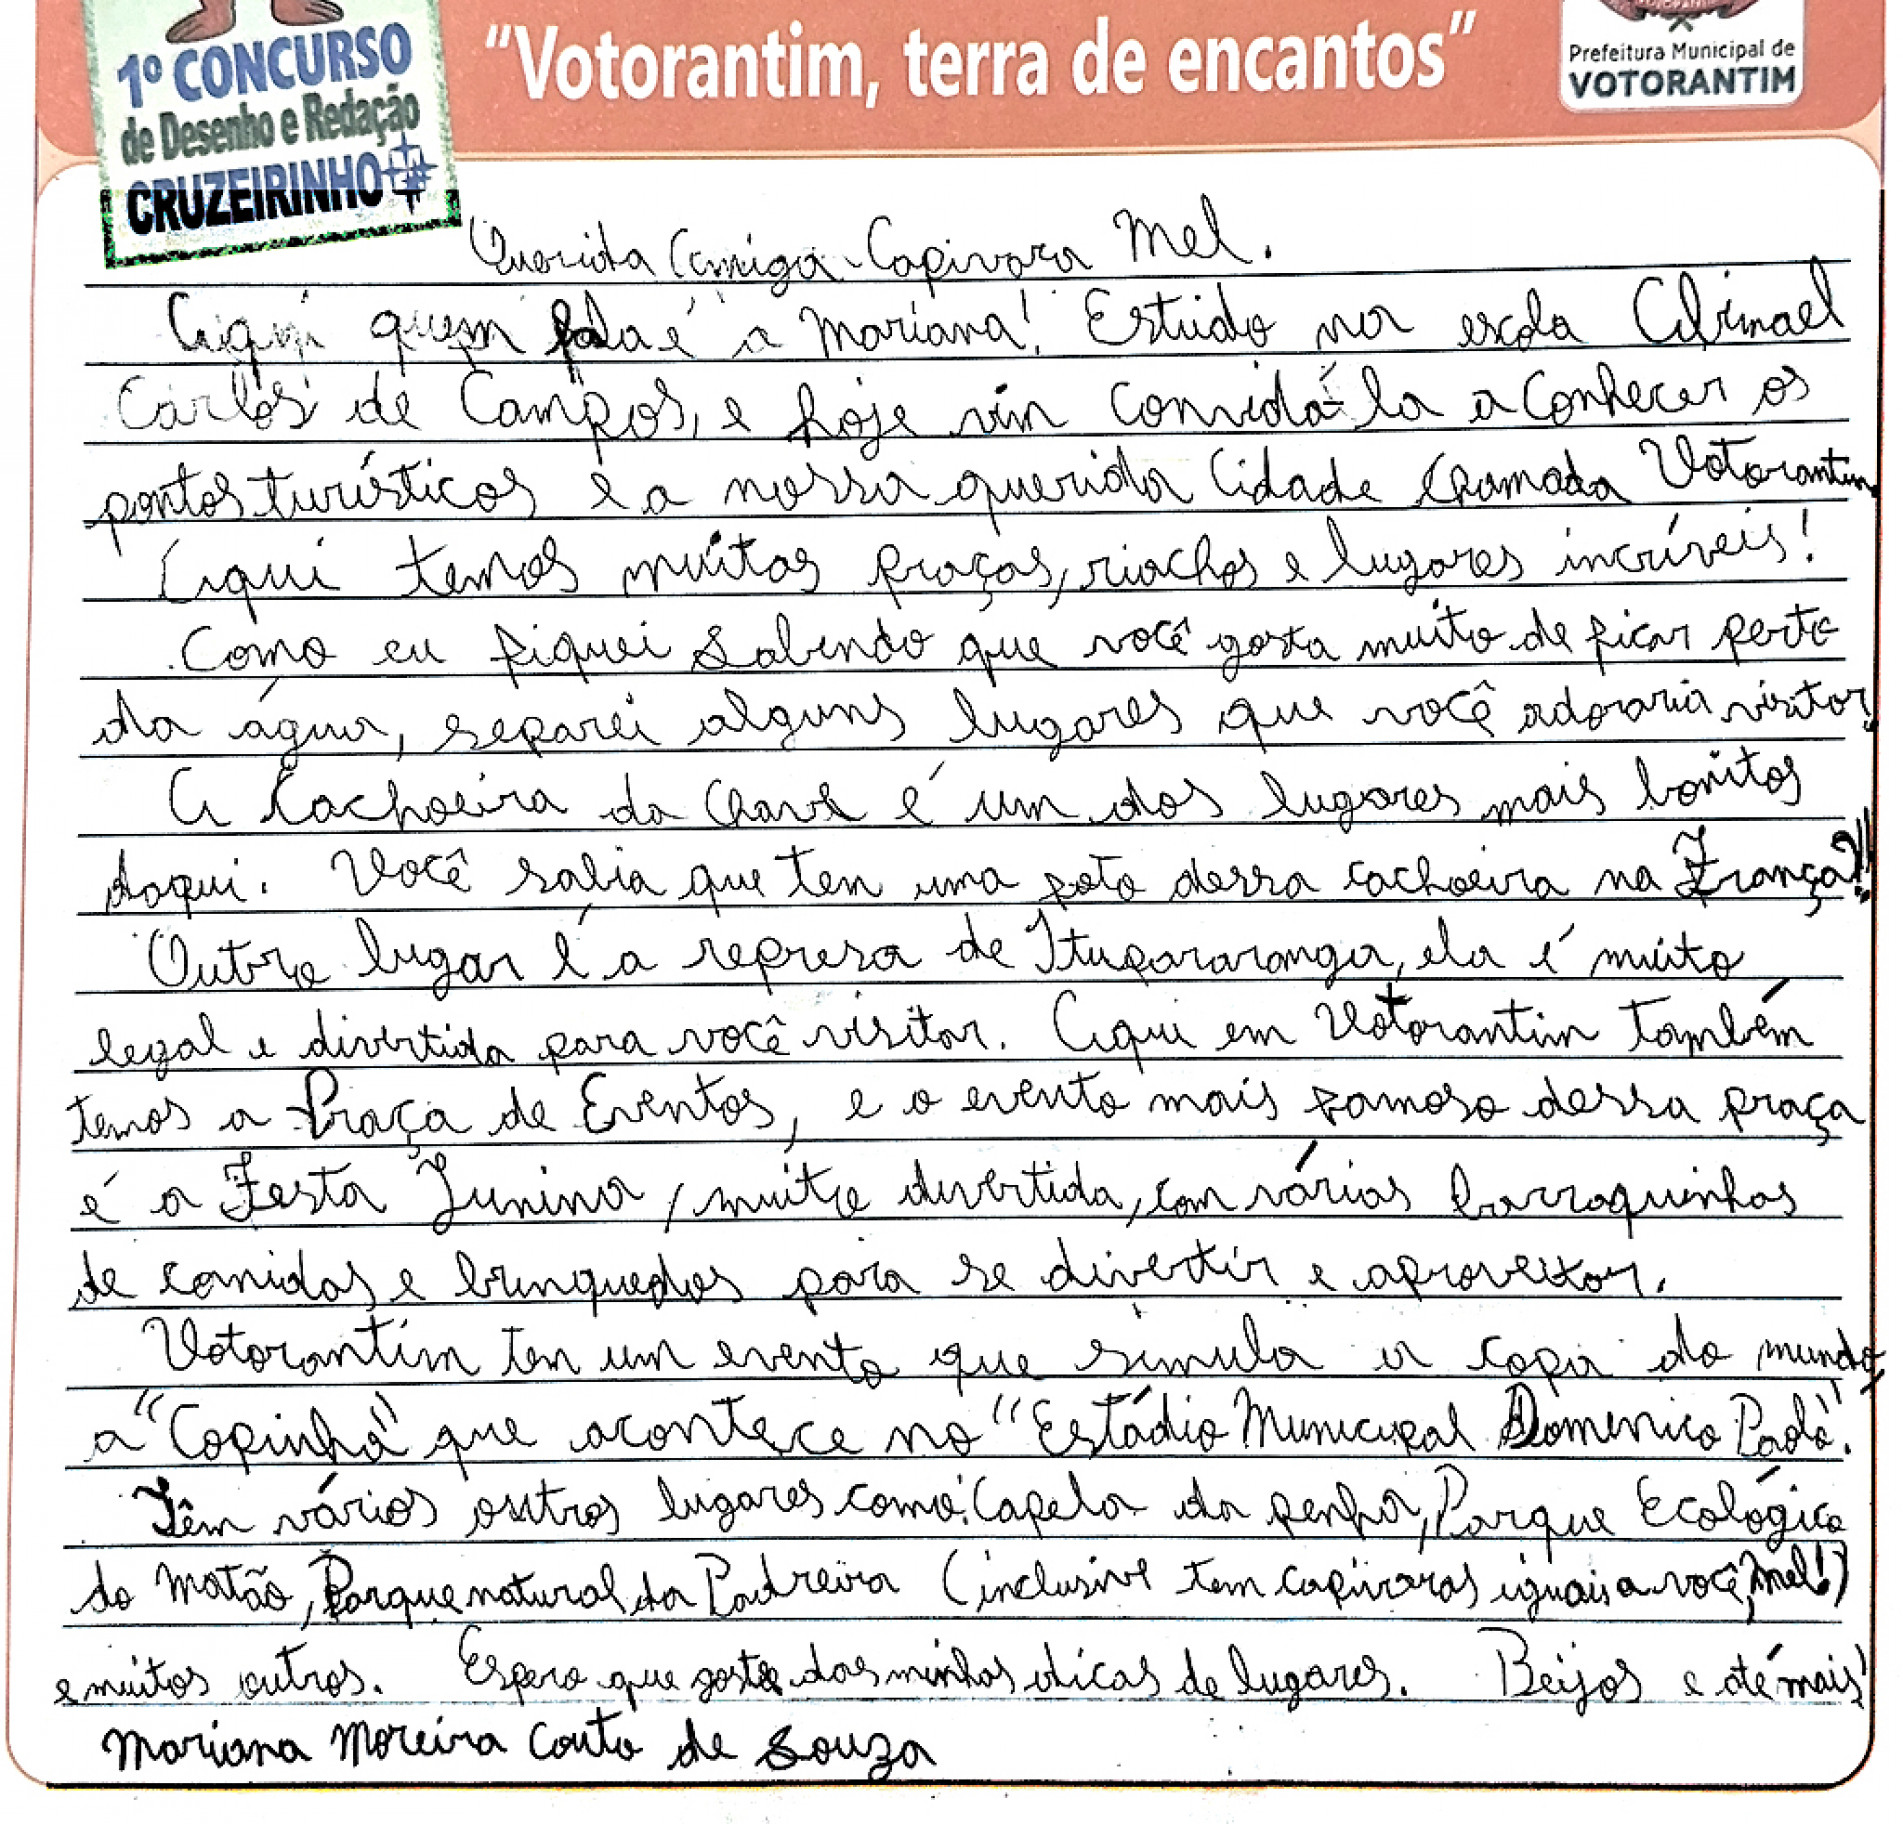 1º CONCURSO
de Desenho e Redação
CRUZEIRINHO
"Votorantim, terra de encantos"
Prefeitura Municipal de
VOTORANTIM
Querida Amiga Capivara Mel.
Aqui quem fala é a Mariana! Estudo na escola
Carlos de Campos, e hoje vim convidá-la a conhecer os
pontos turísticos e a nossa querida cidade chamada Votorantim.
Aqui temos muitas praças, riachos e lugares incríveis!
Como eu fiquei sabendo que você gosta muito de ficar perto
da água, separei alguns lugares que você adoraria visitar.
A Cachoeira da Chave é um dos lugares mais bonitos
daqui. Você sabia que tem uma foto dessa cachoeira na França?!!
Outro lugar é a represa de Itupararanga, ela é muito
legal e divertida para você visitar. Aqui em Votorantim também
temos a Praça de Eventos, e o evento mais famoso dessa praça
é a Festa Junina, muito divertida, com várias barraquinhas
de comidas e brinquedos para se divertir e aproveitar.
Votorantim tem um evento que simula a copa do mundo,
a "Copinha" que acontece no "Estádio Municipal Domenico Paolo".
Têm vários outros lugares como: Capela da penha, Parque Ecológico
do Matão, Parque natural da Padreira (inclusive tem capivaras iguais a você, Mel!)
e muitos outros. Espero que goste das minhas dicas de lugares. Beijos e até mais!
Mariana Moreira Couto de Souza